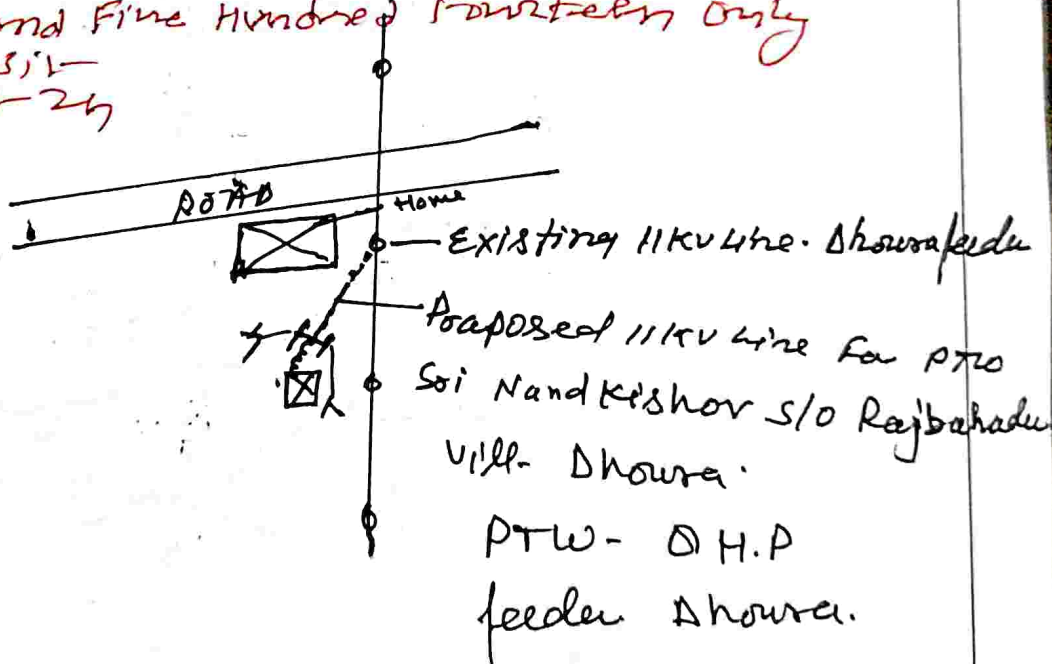 and Five Hundred Fourteen Only
ROAD
Home
Existing 11KV Line. Dhowra feeder
Proposed 11KV Line For PTW
Sri Nand Kishor S/O Rajbahadu
Vill- Dhowra.
PTW- H.P
feeder Dhowra.